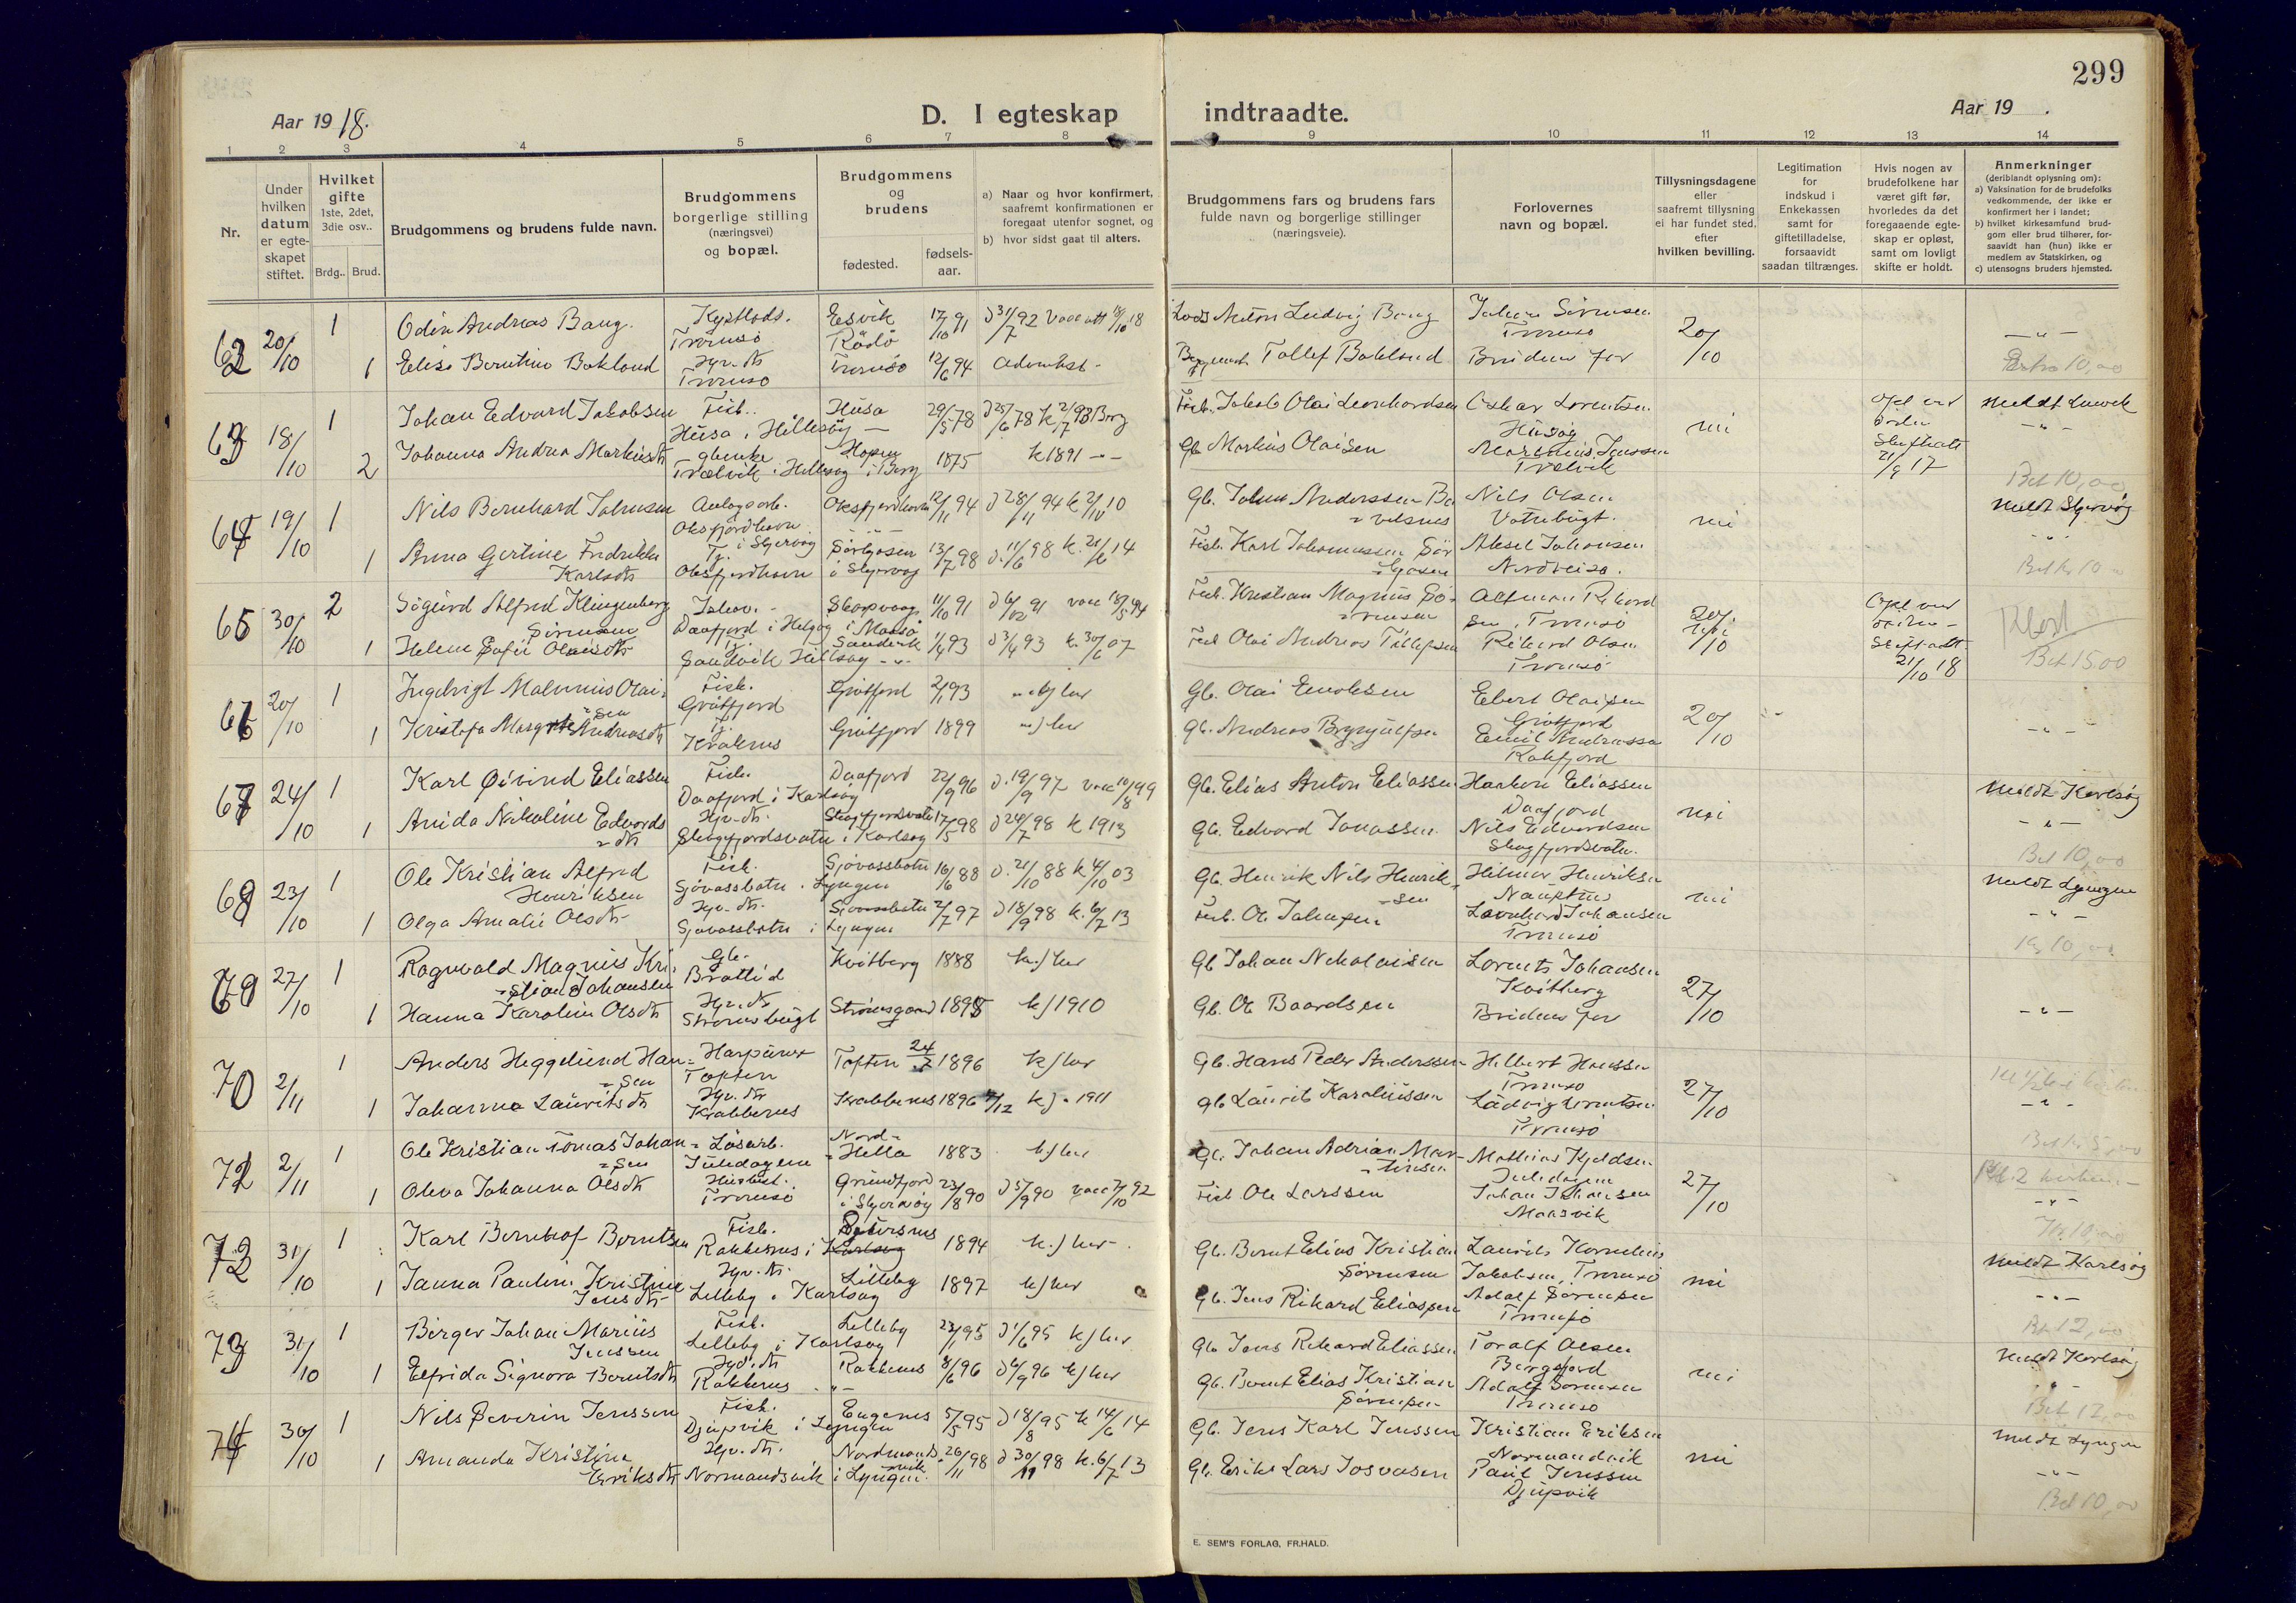 299
Aar 1918.
D. I egteskap indtraadte.
Aar 19 .
1 2 3 4 5 6 7 8 9 10 11 12 13 14
Nr.
Under hvilken datum er egteskapet stiftet.
Hvilket gifte 1ste, 2det, 3die osv..
Brdg.. Brud.
Brudgommens og brudens fulde navn.
Brudgommens borgerlige stilling (næringsvei) og bopæl.
Brudgommens og brudens
fødested.
fødsels-aar.
a) Naar og hvor konfirmert, saafremt konfirmationen er foregaat utenfor sognet, og
b) hvor sidst gaat til alters.
Brudgommens fars og brudens fars fulde navn og borgerlige stillinger (næringsveie).
Forlovernes navn og bopæl.
Tillysningsdagene eller saafremt tillysning ei har fundet sted, efter hvilken bevilling.
Legitimation for indskud i Enkekassen samt for giftetilladelse, forsaavidt saadan tiltrænges.
Hvis nogen av brudefolkene har været gift før, hvorledes da det foregaaende egteskap er opløst, samt om lovligt skifte er holdt.
Anmerkninger (deriblandt oplysning om):
a) Vaksination for de brudefolks vedkommende, der ikke er konfirmert her i landet;
b) hvilket kirkesamfund brudgom eller brud tilhører, forsaavidt han (hun) ikke er medlem av Statskirken, og
c) utensogns bruders hjemsted.
62 20/10 1 Odin Andreas Bang. Kystlods. Tromsø Esvik Rödö 17/10 91 d 31/7 92 vacc att 18/10 18 Lods Anton Ludvig Bang Johan Sörensen Tromsö 20/10
1 Elise Berntine Bakland Hv. dtr Tromsö Tromsö 12/6 94 Tollef Bakland Brudens far 10,00
63 18/10 1 Johan Edvard Jakobsen Fisk. Husø i Hillesøy Husø 29/5 78 d 25/6 78 k 2/7 93 Berg Fisk. Jakob Olai Leonhardsen Oskar Lorentsen Husøy nei
2 Johanna Andrea Markusdtr Trælvik i Hillesøy i Berg 1875 k 1891 Gb Markus Olaisen Jenssen Trælvik 21/9 17 Bet 10,00
64 19/10 1 Nils Bernhard Johnsen Oksfjordhavn i Skjervøy Oksfjordhavn 12/11 94 d 28/11 94 k 2/10 10 Gb. Nils Olsen Vatnbugt. nei meldt Skjervøy
1 Anna Gertine Fredrikke Karlsdtr Tj. Oksfjordhavn i Skjervøy 13/7 98 d. 11/6 98 k. 21/6 14 Fisk. Karl Johannessen Aksel Johansen Nordreisa.
65 30/10 2 Sigurd Alfred Klingenberg Sörensen Daafjord i Helgøy Skorpvaag i Maasø 11/10 91 d 6/12 91 vacc 18/5 94 Fisk. Kristian Magnus Sörensen Tromsö 20/10 21/10 18
1 Helene Sofie Olaisdtr Tj. Sandvik Hillesøy Sandvik 1/4 93 d 3/4 93 k. 30/6 07 Fisk Olai Andreas Tollefsen Rikard Olsen Tromsö Bet 15.00
66 20/10 1 Ingebrigt Malenius Olaisen Fisk. Grötfjord Grötfjord 2/1 93 k/her Gb. Olai Enoksen Ebert Olaisen Grötfjord 20/10
1 Kristofa Margrete Andreasdtr Tj. Kraknes Grötfjord 1899 k/her Gb. Andreas Brynjulfsen Emil Andreassen Rakfjord
67 24/10 1 Karl Øivind Eliassen Fisk. Daafjord i Karlsøy Daafjord 22/9 96 d. 19/9 97 vacc 10/8 99 Gb. Elias Anton Eliassen Haakon Eliassen Daafjord nei meldt Karlsøy
1 Anida Nikoline Edvardsdtr Hv. dtr. Skogfjordsvatn i Karlsøy Skogfjordsvatn 17/5 98 d 24/7 98 k 1913 Gb. Edvard Jonassen. Nils Edvardsen Skogfjordsvatn. Bet 10,00
68 23/10 1 Ole Kristian Alfred Henriksen Fisk. Sjövassbotn i Lyngen Sjövassbotn 16/6 88 d. 21/10 88 k 4/10 03 Gb. Henrik Nils Henriksen Hilmar Henriksen nei meldt Lyngen
1 Olga Amalie Olsdtr Hv. dtr. Sjövassbotn i Lyngen Sjövassbotn 2/7 97 d 18/9 98 k. 6/7 13 Fisk. Ole Johansen Leonhard Johansen Tromsö 10,00
69 27/10 1 Ragnvald Magnus Kristian Johansen Gb. Brattlid Kvitberg 1888 k./her Gb Johan Nikolaisen Lorents Johansen Kvitberg 27/10
1 Hanna Karoline Olsdtr Hv. dtr Strømsbugt Strømsgaard 1895 k/1910 Gb. Ole Baardsen Brudens far
70 2/11 1 Anders Heggelund Hansen Toften Toften 24/7 1896 k/her Gb. Hans Peder Anderssen Hilbert Hanssen Tromsö 27/10
1 Johanna Lauritsdtr Hv. dtr Krabbenes Krabbenes 1896 k/. 1911 Gb Laurits Karoliussen Ludvig Lorentsen Tromsö
71 2/11 1 Ole Kristian Tomas Johansen Lösarb. Nord-Hella 1883 k/her Gb. Johan Adrian Martinsen Mathias Kjeldsen 27/10
1 Oleva Johanna Olsdtr Tromsö Grundfjord i Skjervøy 23/8 90 d 5/9 90 vacc 7/10 92 Fisk Ole Larssen Johan Johansen Maasvik 10,00
72 31/10 1 Karl Berntof Berntsen Fisk. Rakkenes i Karlsøy 1894 k./her Gb. Bernt Elias Kristian Sørensen Laurits Kornelius Jakobsen, Tromsö nei meldt Karlsøy
1 Janna Pauline Kristine Jensdtr Hv. dtr. Lilleby i Karlsøy Lilleby 1897 k/her Gb. Jens Rikard Eliassen Adolf Sørensen Tromsø Bet 12,00
73 31/10 1 Birger Johan Marius Jenssen Fisk. Lilleby i Karlsøy Lilleby 23/1 95 d 1/6 95 k/her Gb Jens Rikard Eliassen Toralf Olsen Bergsfjord nei meldt Karlsøy
1 Elfrida Signora Berntsdtr Rakkenes Rakkenes 8/6 96 d 6/9 96 k/her Gb. Bernt Elias Kristian Sørensen Adolf Sørensen Tromsö Bet 12,00
74 30/10 1 Nils Severin Jenssen Fisk. Djupvik i Lyngen Eugenes 5/5 95 d 18/8 95 k 14/6 14 Gb. Jens Karl Jenssen Kristian Eriksen Normandvik nei meldt Lyngen
1 Amanda Kristine Eriksdtr Hv. dtr. Normandsvik i Lyngen. Nordmandsvik 26/11 98 d 30/11 98 k. 6/7 13 Gb. Erik Lars Josvasen Paul Jenssen Djupvik Bet 10,00
E. SEM'S FORLAG, FR.HALD.